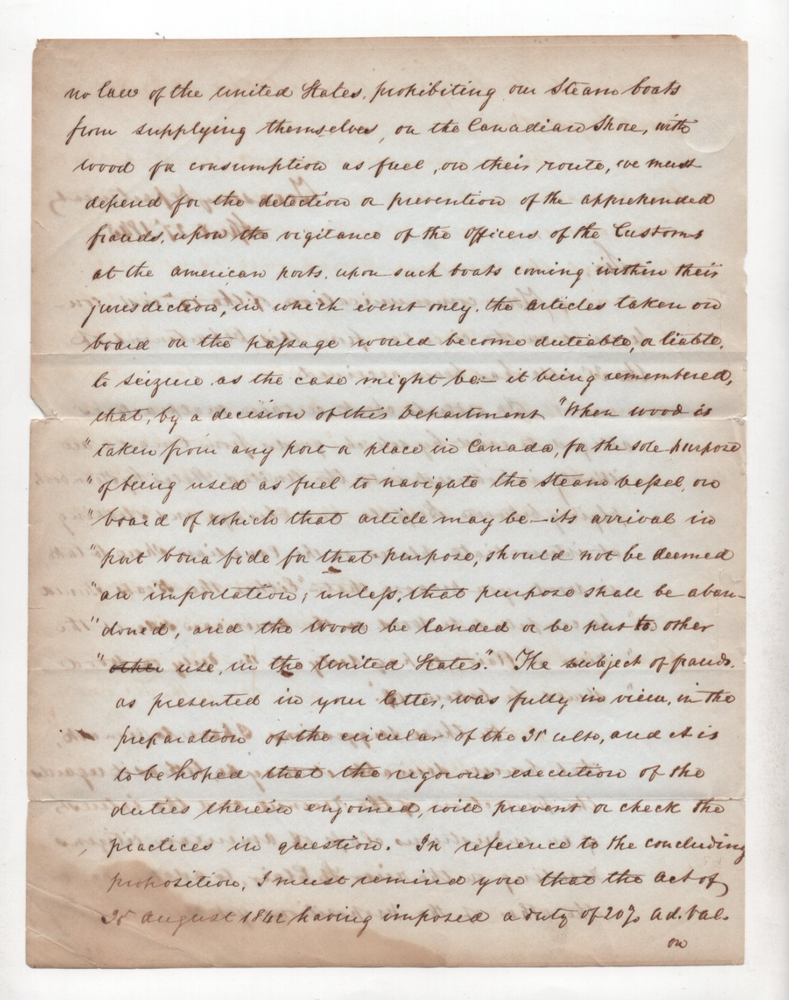 no law of the United States, prohibiting our Steam boats
from supplying themselves, on the Canadian Shore, with
wood for consumption as fuel, on their route, we must
depend for the detection or prevention of the apprehended
frauds, upon the vigilance of the Officers of the Customs
at the american ports, upon such boats coming within their
jurisdiction, in which event only, the articles taken on
board on the passage would become dutiable, or liable,
to seizure as the case might be – it being remembered,
that, by a decision of this Department "When wood is
"taken from any port or place in Canada, for the sole purpose
"of being used as fuel to navigate the Steam vessel, on
"board of which that article may be – its arrival in
"port bona fide for that purpose, should not be deemed
"an importation; unless, that purpose shall be aban-
"doned, and the wood be landed or be put to other
"other use, in the United States." The subject of frauds,
as presented in your letter, was fully in view, in the
preparation of the circular of the ulto, and it is
to be hoped that the rigorous execution of the
duties therein enjoined, will prevent or check the
practices in question. In reference to the concluding
proposition, I must remind you that the act of
August having imposed a duty of 20% ad. val.
on